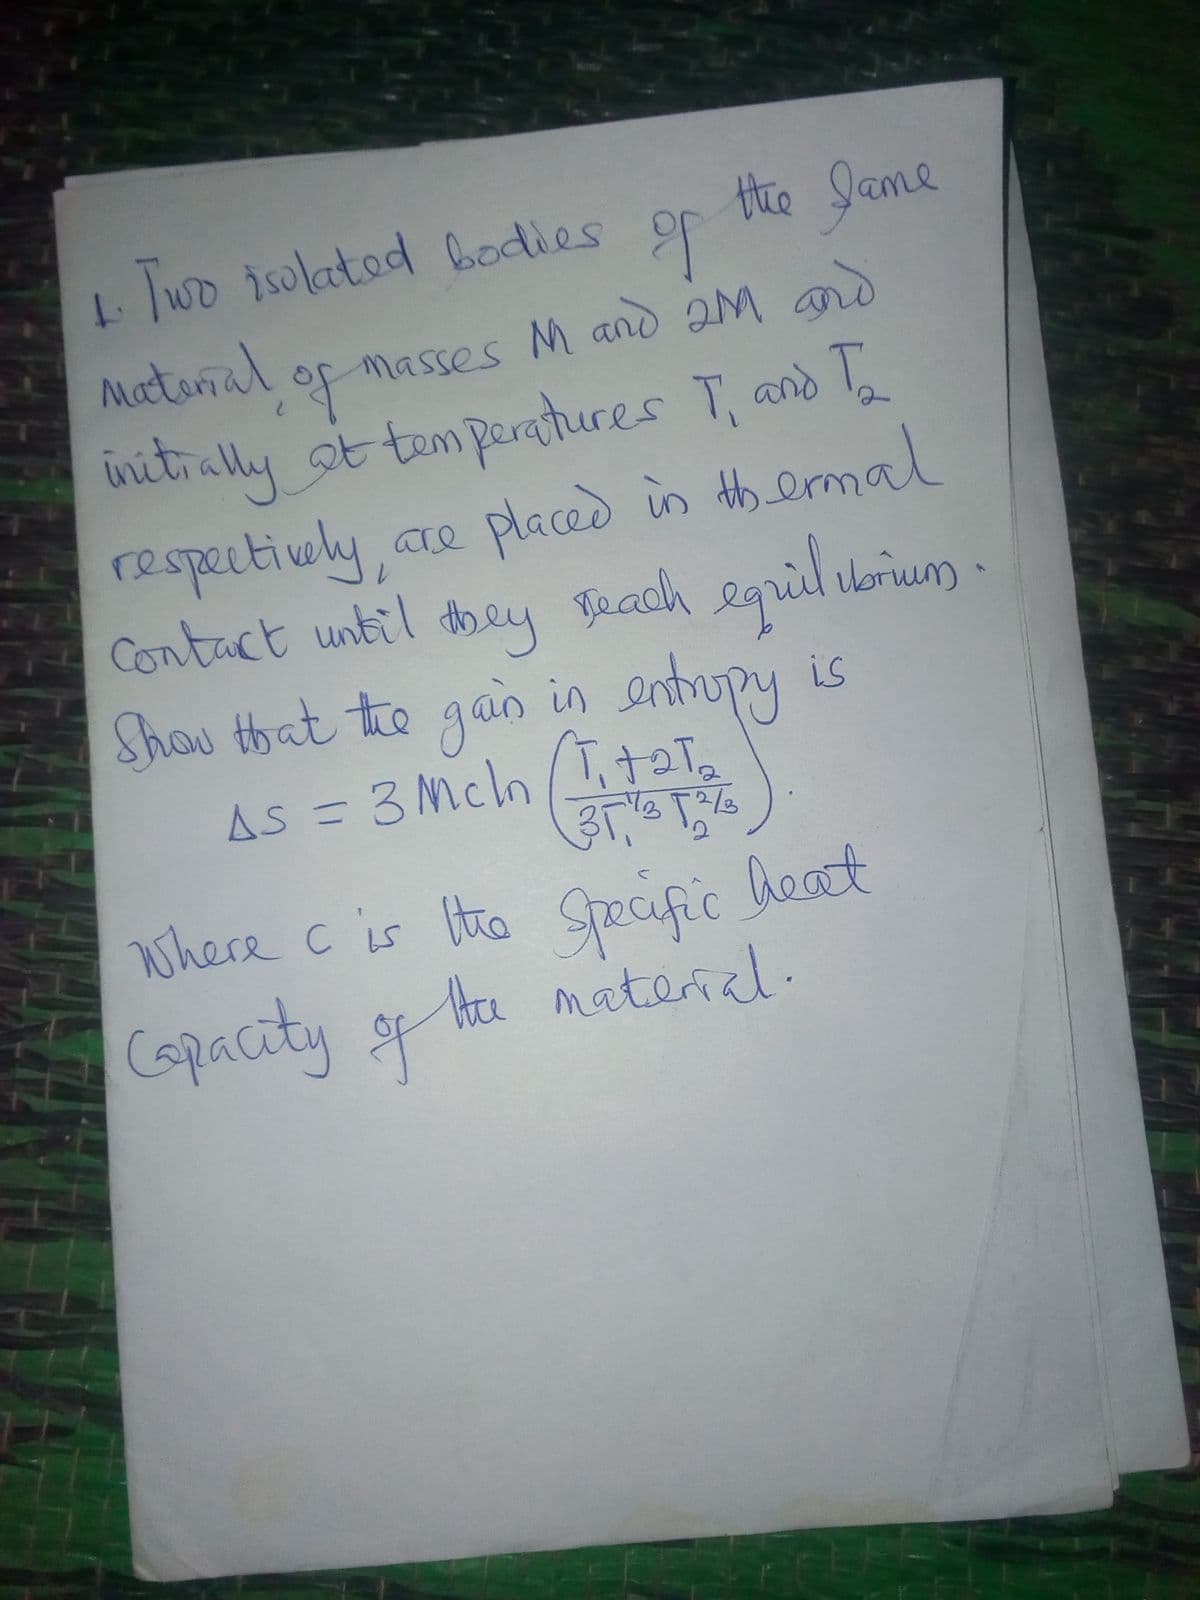 1. Two isolated bodies of the same
material, of masses M and 2M and
initially at temperatures T₁ and T₂
respectively, are placed in thermal
Contact until they reach equilibrium.
Show that the gain in entropy is
ΔS = 3Mcln (T₁+2T₂ / 3T₁^1/3 T₂^2/3).
Where c is the specific heat
Capacity of the material.